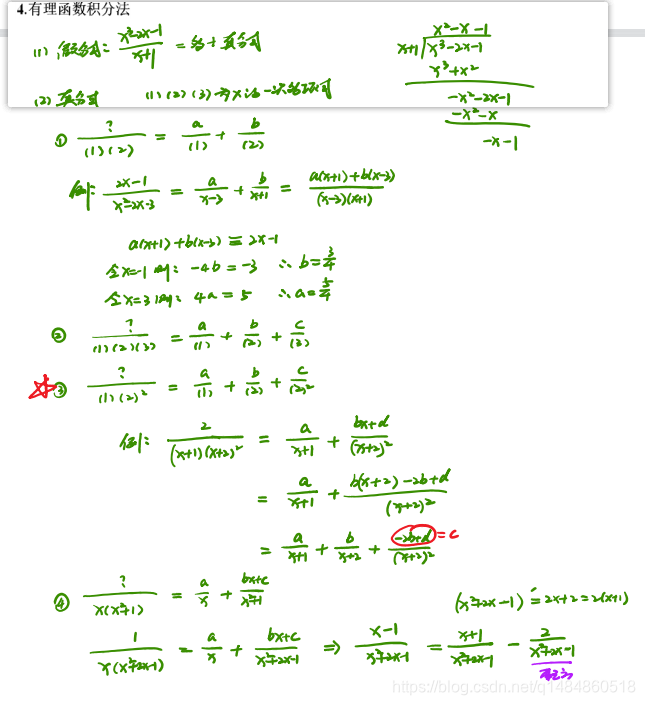 4.有理函数积分法
(1) 假分式: x³-2x-1 / x+1 = 多 + 真分式
x²-x-1
x+1 √ x³-2x-1
x³+x²
-x²-2x-1
-x²-x
-x-1
(2) 真分式 (1)(2)(3)为x的一次多项式
① ? / (1)(2) = a/(1) + b/(2)
例: 2x-1 / x²-2x-3 = a/x-3 + b/x+1 = a(x+1)+b(x-3) / (x-3)(x+1)
a(x+1)+b(x-3) ≡ 2x-1
令x=-1时: -4b=-3 ∴b=3/4
令x=3时: 4a=5 ∴a=5/4
② ? / (1)(2)(3) = a/(1) + b/(2) + c/(3)
③ ? / (1)(2)² = a/(1) + b/(2) + c/(2)²
例: 2 / (x+1)(x+2)² = a/x+1 + bx+d/(x+2)²
= a/x+1 + b(x+2)-2b+d/(x+2)²
= a/x+1 + b/x+2 + -2b+d/(x+2)² =c
④ ? / x(x²+1) = a/x + bx+c/x²+1
(x²+2x-1)′=2x+2=2(x+1)
1 / x(x²+2x-1) = a/x + bx+c/x²+2x-1 ⇒ x-1/x²+2x-1 = x+1/x²+2x-1 - 2/x²+2x-1
https://blog.csdn.net/q1484860518